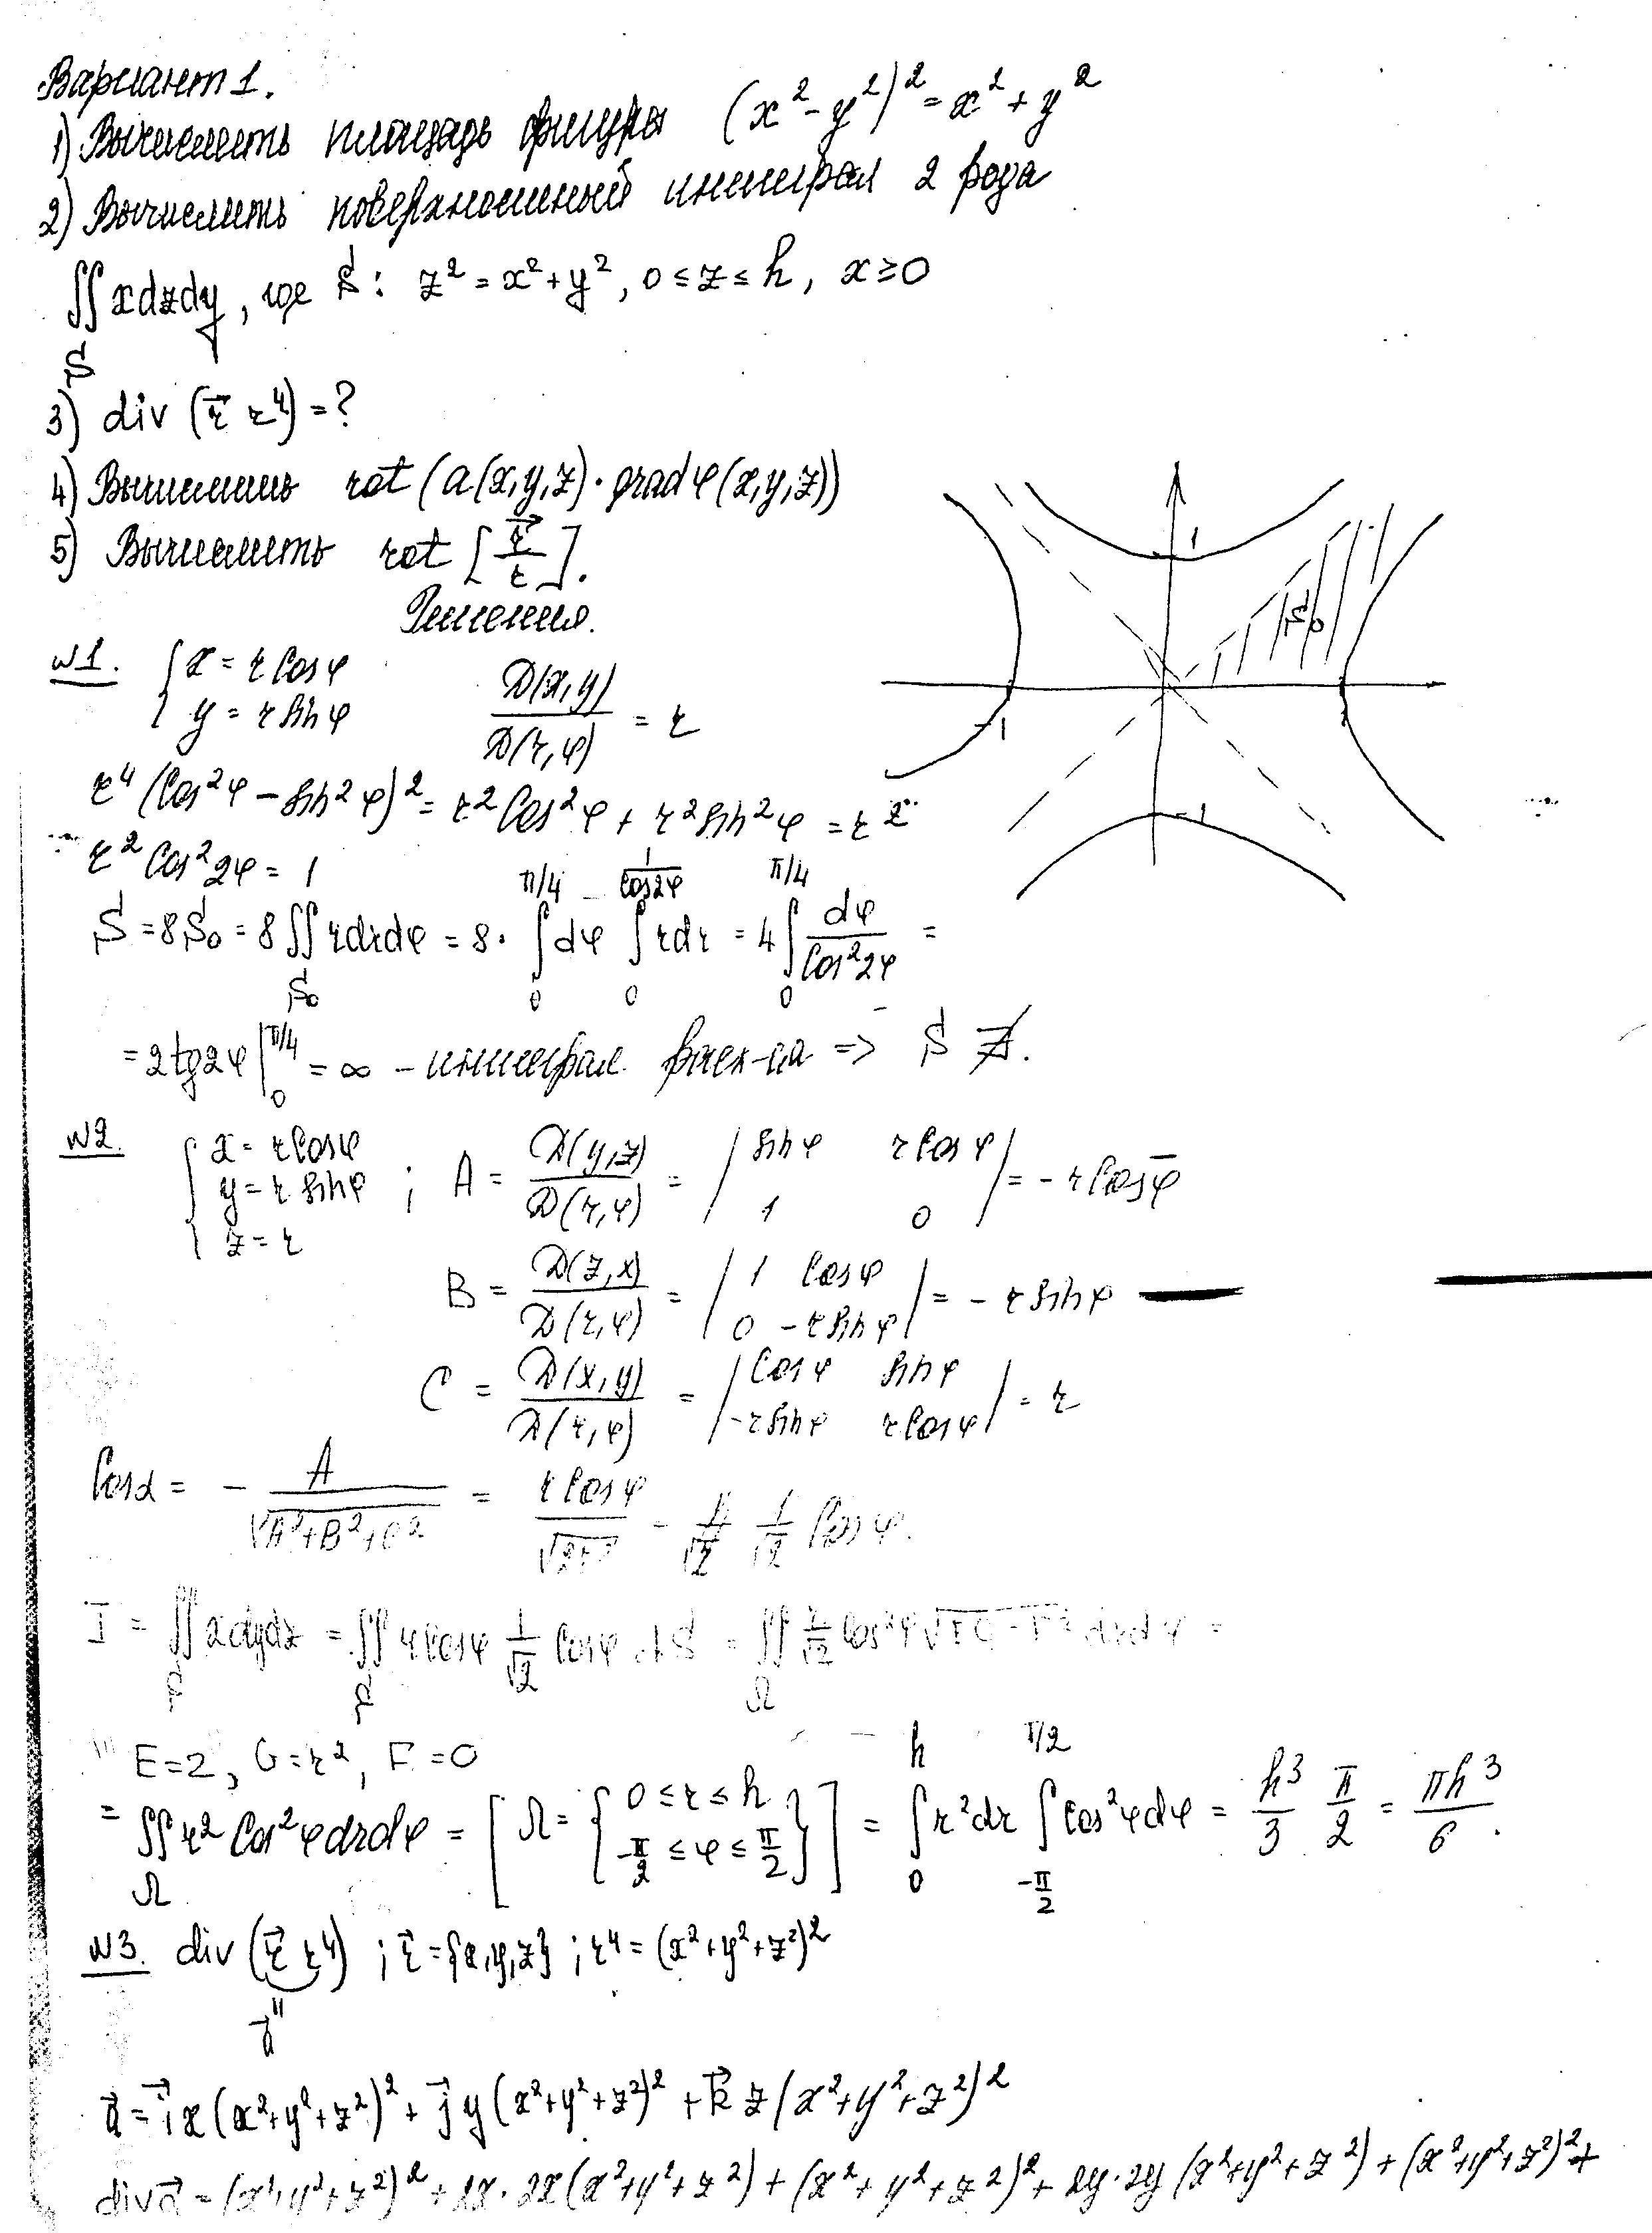 Вариант 1.
1) Вычислить площадь фигуры (x² - y²)² = x² + y²
2) Вычислить поверхностный интеграл 2 рода
∬_S x dz dy, где S: z² = x² + y², 0 ≤ z ≤ h, x ≥ 0
3) div (r⃗ r⁴) = ?
4) Вычислить rot (a(x,y,z) · grad φ(x,y,z))
5) Вычислить rot [r⃗/r].
1
S₀
-1
1
-1
Решения.
N1. { x = r cos φ, y = r sin φ   D(x,y)/D(r,φ) = r
r⁴ (cos²φ - sin²φ)² = r² cos²φ + r² sin²φ = r²
r² cos² 2φ = 1
S = 8S₀ = 8 ∬_{S₀} r dr dφ = 8 · ∫₀^{π/4} dφ ∫₀^{1/cos2φ} r dr = 4 ∫₀^{π/4} dφ/cos²2φ =
= 2 tg 2φ |₀^{π/4} = ∞ - интеграл расх-ся => S ∄.
N2. { x = r cos φ, y = r sin φ, z = r ; A = D(y,z)/D(r,φ) = | sin φ  r cos φ ; 1  0 | = - r cos φ
B = D(z,x)/D(r,φ) = | 1  cos φ ; 0  -r sin φ | = - r sin φ
C = D(x,y)/D(r,φ) = | cos φ  sin φ ; -r sin φ  r cos φ | = r
cos α = - A/√(A²+B²+C²) = r cos φ/√(2r²) = 1/√2 cos φ.
I = ∬_S x dy dz = ∬_S r cos φ 1/√2 cos φ dS = ∬_Ω r/√2 cos²φ √(EG - F²) dr dφ =
E = 2, G = r², F = 0
= ∬_Ω r² cos²φ dr dφ = [Ω = {0 ≤ r ≤ h, -π/2 ≤ φ ≤ π/2}] = ∫₀^h r² dr ∫_{-π/2}^{π/2} cos²φ dφ = h³/3 π/2 = πh³/6.
N3. div (r⃗ r⁴) ; r⃗ = {x,y,z} ; r⁴ = (x²+y²+z²)²
a⃗ = i⃗ x (x²+y²+z²)² + j⃗ y (x²+y²+z²)² + k⃗ z (x²+y²+z²)²
div a⃗ = (x²+y²+z²)² + 2x · 2x (x²+y²+z²) + (x²+y²+z²)² + 2y · 2y (x²+y²+z²) + (x²+y²+z²)² +